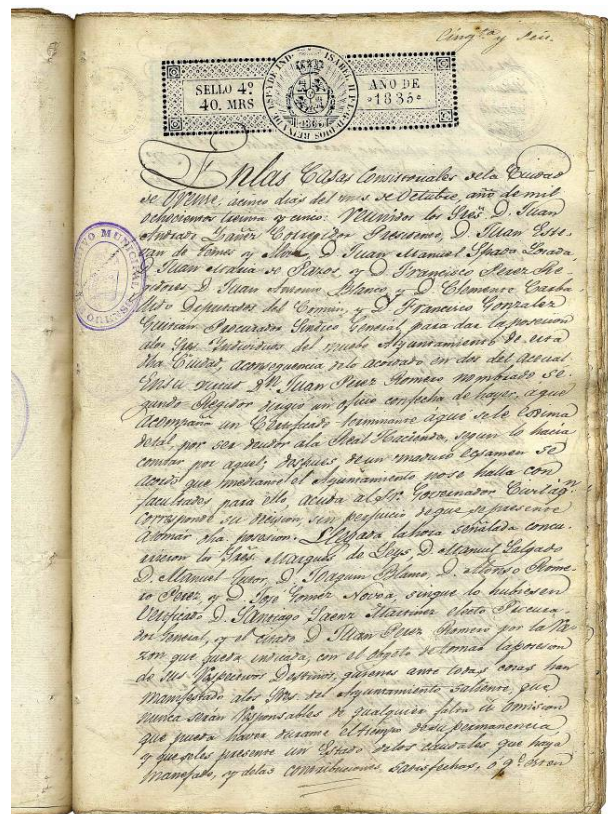 Cinqta y Seis.
SELLO 4º
40. MRS
ISABEL II P. L. G. D. DIOS REINA DE ESP. Y DE IND.
AÑO DE
1835
En las Casas Consistoriales de la Ciudad
de Orense, a cinco dias del mes de Octubre, año de mil
ochocientos treinta y cinco: Reunidos los Sres. D. Juan
Andrade Yañez Corregidor Presidente, D. Juan Este-
van de Temes y D. Juan Manuel Losada
D. Juan Maria de Pazos, y D. Francisco Perez Re-
gidores D. Juan Antonio Blanco, y D. Clemente Carba-
llido Diputados del Comun, y D. Francisco Gonzalez
Guitian Procurador Sindico General, para dar la posesion
a los Sres. Individuos del nuebo Ayuntamiento de esta
dha Ciudad, a consequencia delo acordado en dos del actual.
En su virtud D. Juan Perez Romero nombrado se-
gundo Regidor dirigio un oficio con fecha de hayer, a que
acompaña un Certificado terminante a que se le exsima
detal, por ser deudor ala Real Hacienda, segun lo hacia
constar por aquel; despues de un maduro ecsamen se
acordó que mediante el Ayuntamiento no se halla con
facultades para ello, acuda al Sr. Governador Civil a qn
corresponde su decision, sin perjuicio de que se presente
atomar dha posesion. Llegada la hora señalada concu-
rrieron los Sres. Marques de Leys, D. Manuel Salgado
D. Manuel Tutor, D. Joaquin Blanco, D. Alonso Rome-
ro Perez, y D. Jose Gomez Novoa, sin que lo hubiesen
Verificado D. Santiago Saenz Martinez electo Procura-
dor General, y el citado D. Juan Perez Romero por la Ra-
zon que queda indicada, con el obgeto de tomar la posesion
de sus Respectivos Destinos, quienes ante todas cosas han
manifestado alos Sres. del Ayuntamiento saliente, que
nunca serán Responsables de qualquier falta de omision
que pueda haver durante el tiempo de su permanencia,
y que seles presente un Estado delos caudales que haya
manejado, y delas contribuciones satisfechas, o qe. esten
ARCHIVO MUNICIPAL